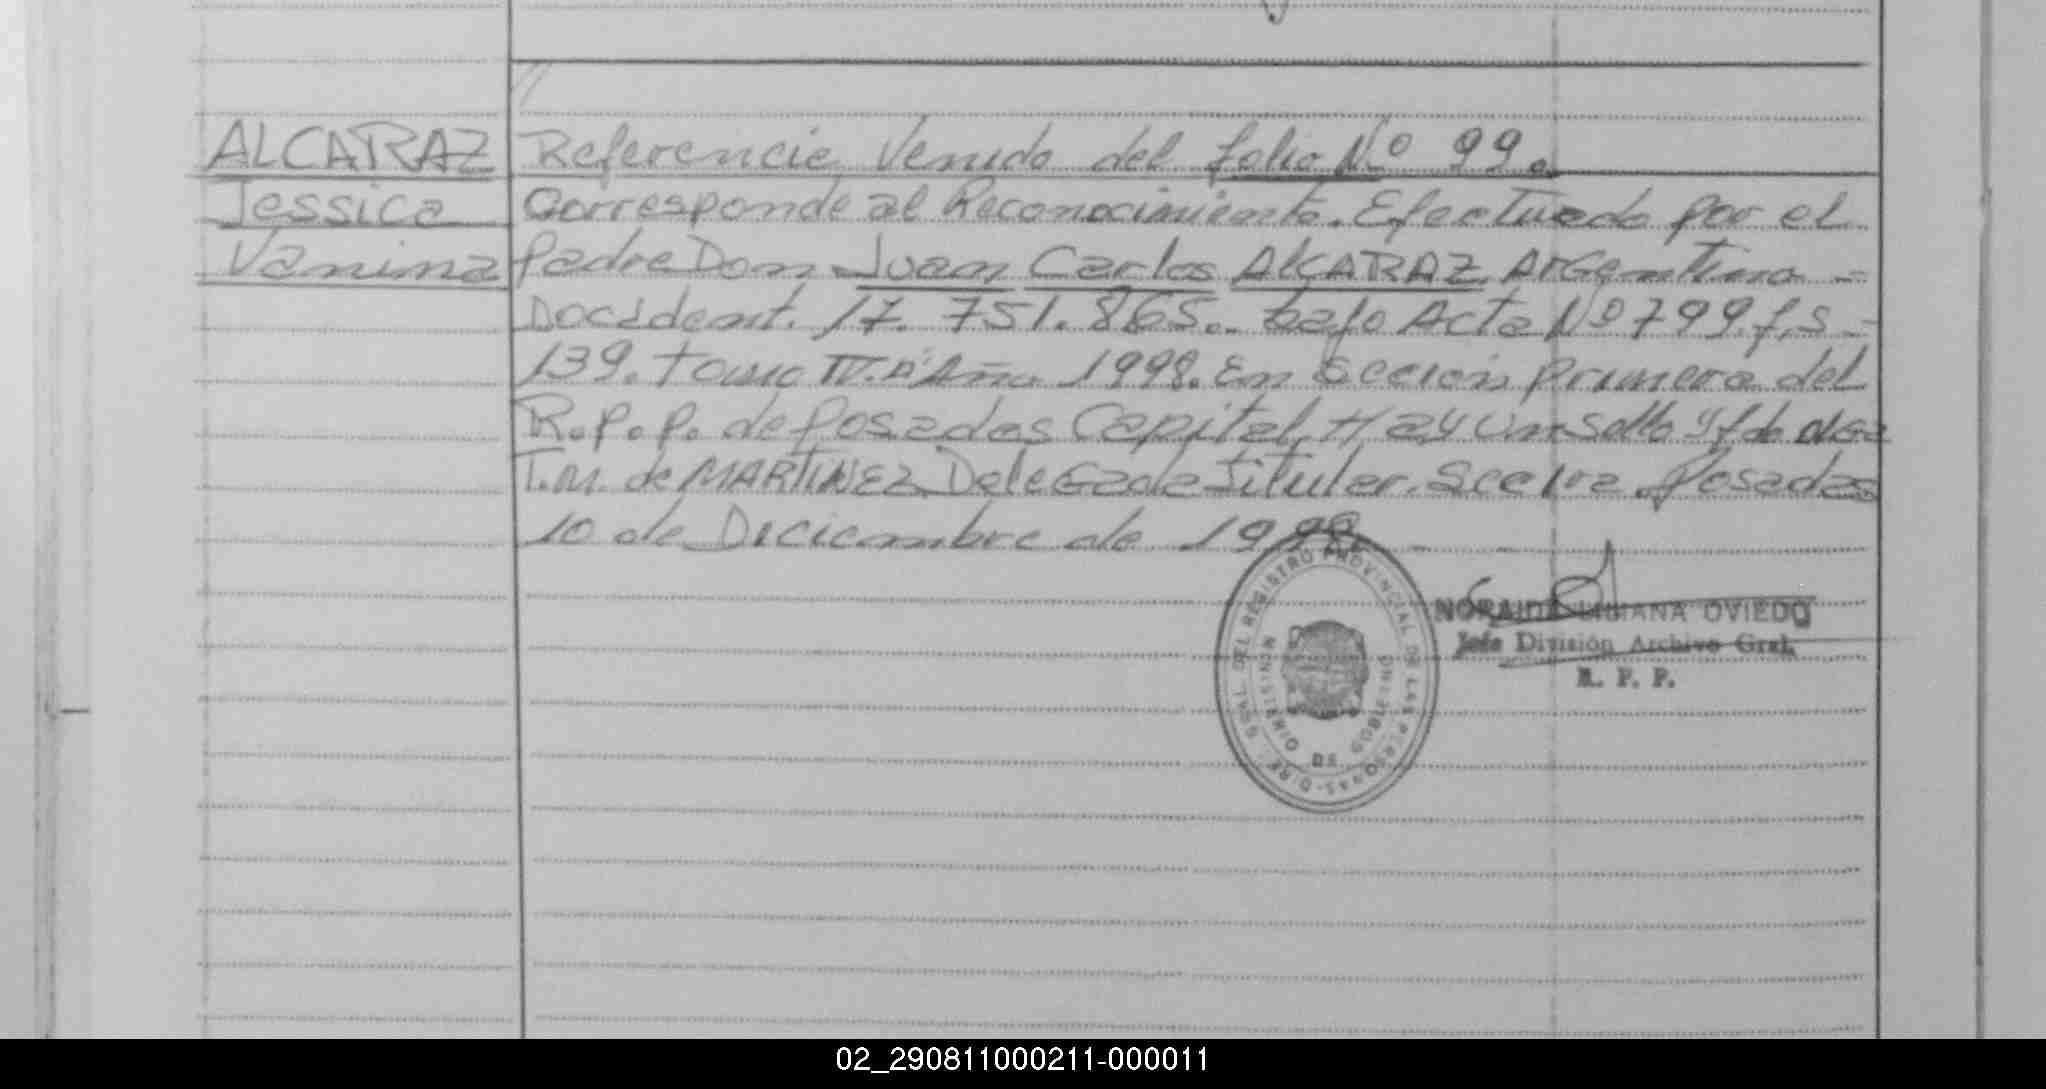 ALCARAZ Referencia Venida del folio Nº 99.
Jessica Corresponde al Reconocimiento. Efectuado por el
Vanina Padre Don Juan Carlos ALCARAZ Argentino =
Doc Ident. 17.751.865. bajo Acta Nº 799. f, s =
139. Tomo IV. "A" Año 1998. En Sección Primera del
R.P.P. de Posadas Capital, Hay un sello y fdo
T.M. de MARTINEZ Delegada Titular. Posadas
10 de Diciembre de 1998
DIRE. GRAL. DEL REGISTRO PROVINCIAL DE LAS PERSONAS
MINISTERIO DE GOBIERNO
NORAIDA LILIANA OVIEDO
Jefe División Archivo Gral.
R. P. P.
02_290811000211-000011